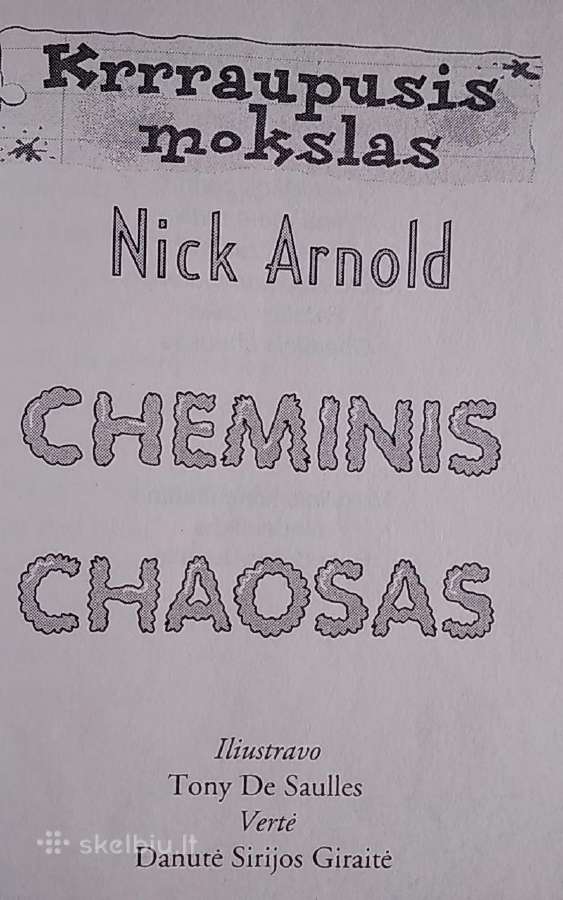 Krrraupusis
mokslas
Nick Arnold
CHEMINIS
CHAOSAS
Iliustravo
Tony De Saulles
Vertė
skelbiu.lt
Danutė Sirijos Giraitė